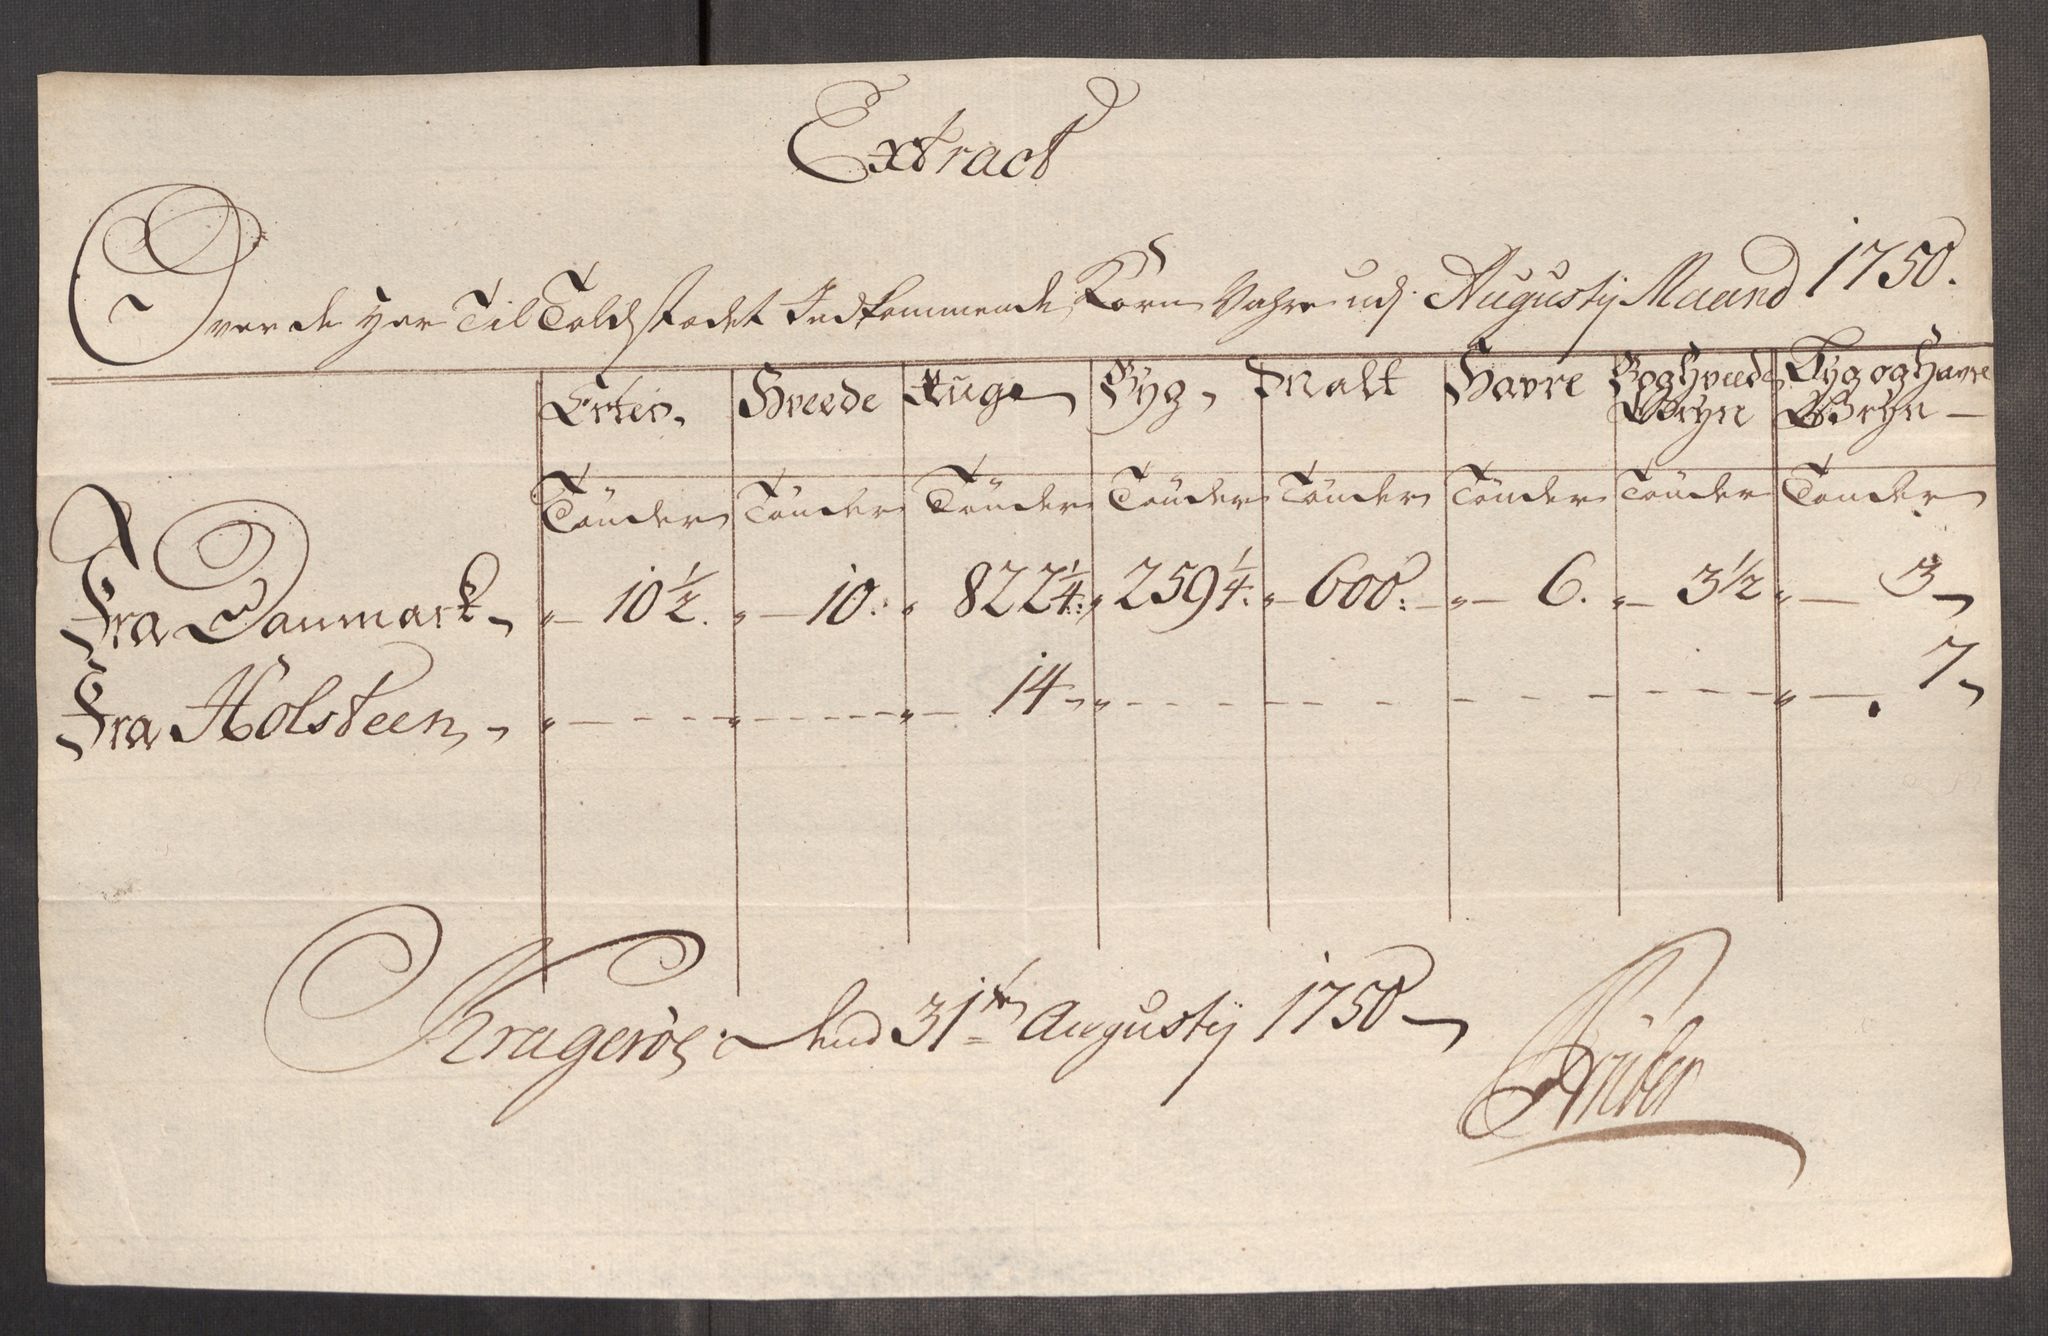 Extract
Over de her Til Toldstædet Indkommende Korn Vahre udj Augustij Maand 1750.
Erter, Hveede Ruge Byg, Malt Havre Boghveede Gryn Byg og Havre Gryn —
Tønder Tønder Tönder Tönder Tönder Tönder Tönder Tönder
Fra Danmark „ 10½. „ 10: „ 822¼: „ 259¼: „ 600: „ 6. „ 3½ „ 3
Fra Holsteen, „ „ „ 14 „ „ 7
Kragerøe, dend 31te Augustij 1750